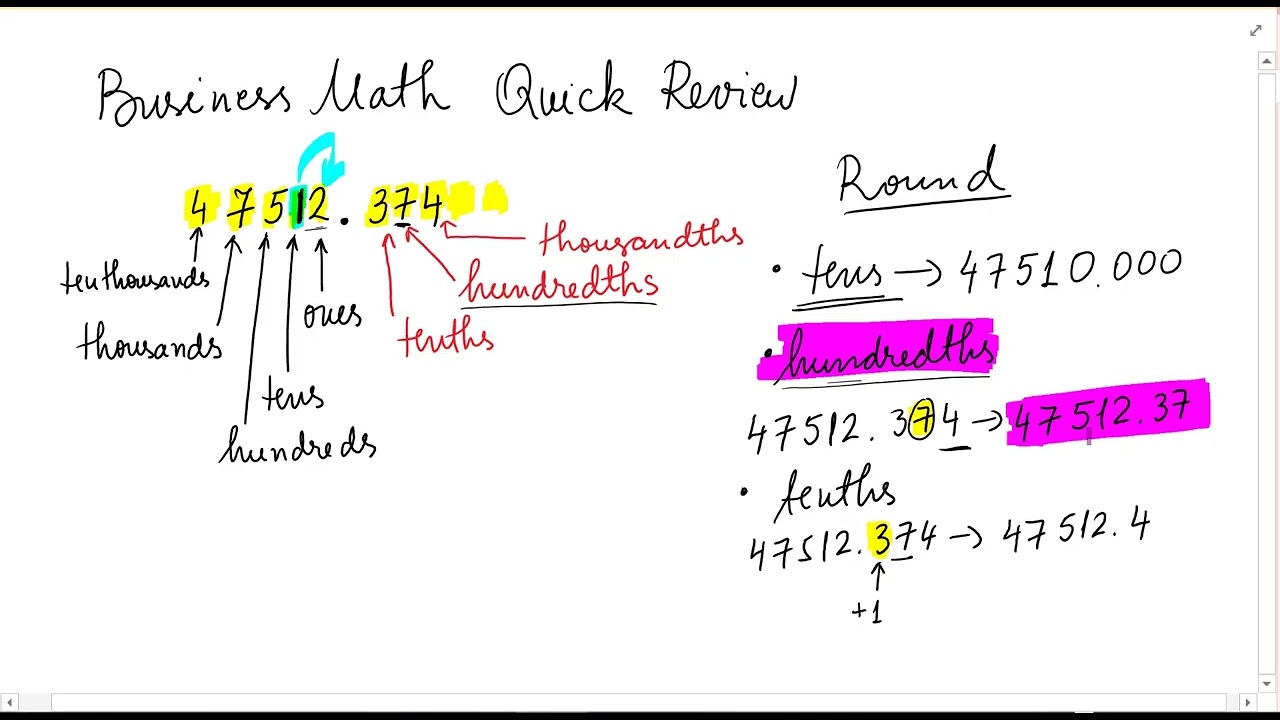 Business Math Quick Review
47512.374
tenthousands
thousands
hundreds
tens
ones
tenths
hundredths
thousandths
Round
• tens → 47510.000
• hundredths
47512.374 → 47512.37
• tenths
47512.374 → 47512.4
+1